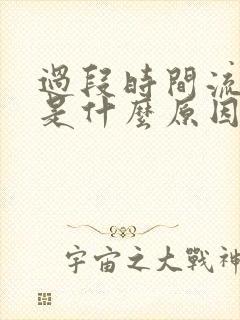 過段時間流
是什麼原因
宇宙之大戰神